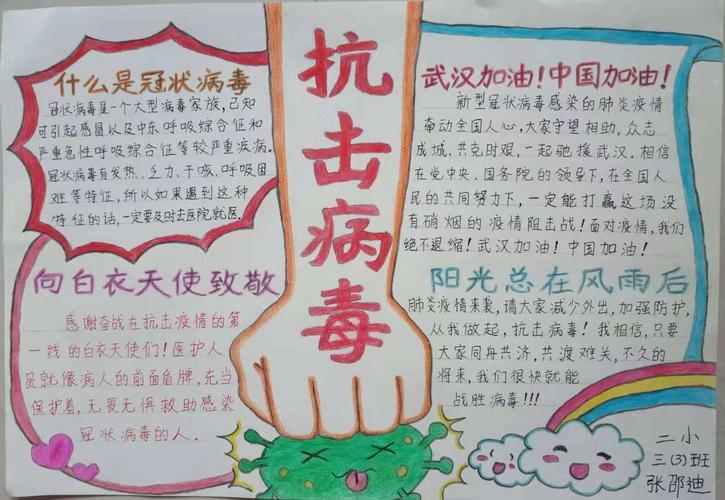 抗击病毒
什么是冠状病毒
冠状病毒是一个大型病毒家族,已知
可引起感冒以及中东呼吸综合征和
严重急性呼吸综合征等较严重疾病.
冠状病毒有发热、乏力、干咳、呼吸困
难等特征,所以如果遇到这种
特征的话,一定要及时去医院就医.
向白衣天使致敬
感谢奋战在抗击疫情的第
一线的白衣天使们!医护人
员就像病人的前面盾牌,充当
保护着,无畏无惧救助感染
冠状病毒的人.
武汉加油!中国加油!
新型冠状病毒感染的肺炎疫情
牵动全国人心,大家守望相助,众志
成城,共克时艰,一起驰援武汉.相信
在党中央、国务院的领导下,在全国人
民的共同努力下,一定能打赢这场没
有硝烟的疫情阻击战!面对疫情,我们
绝不退缩!武汉加油!中国加油!
阳光总在风雨后
肺炎疫情来袭,请大家减少外出,加强防护,
从我做起,抗击病毒!我相信,只要
大家同舟共济,共渡难关,不久的
将来,我们很快就能
战胜病毒!!!
二小
三(3)班
张邵迪